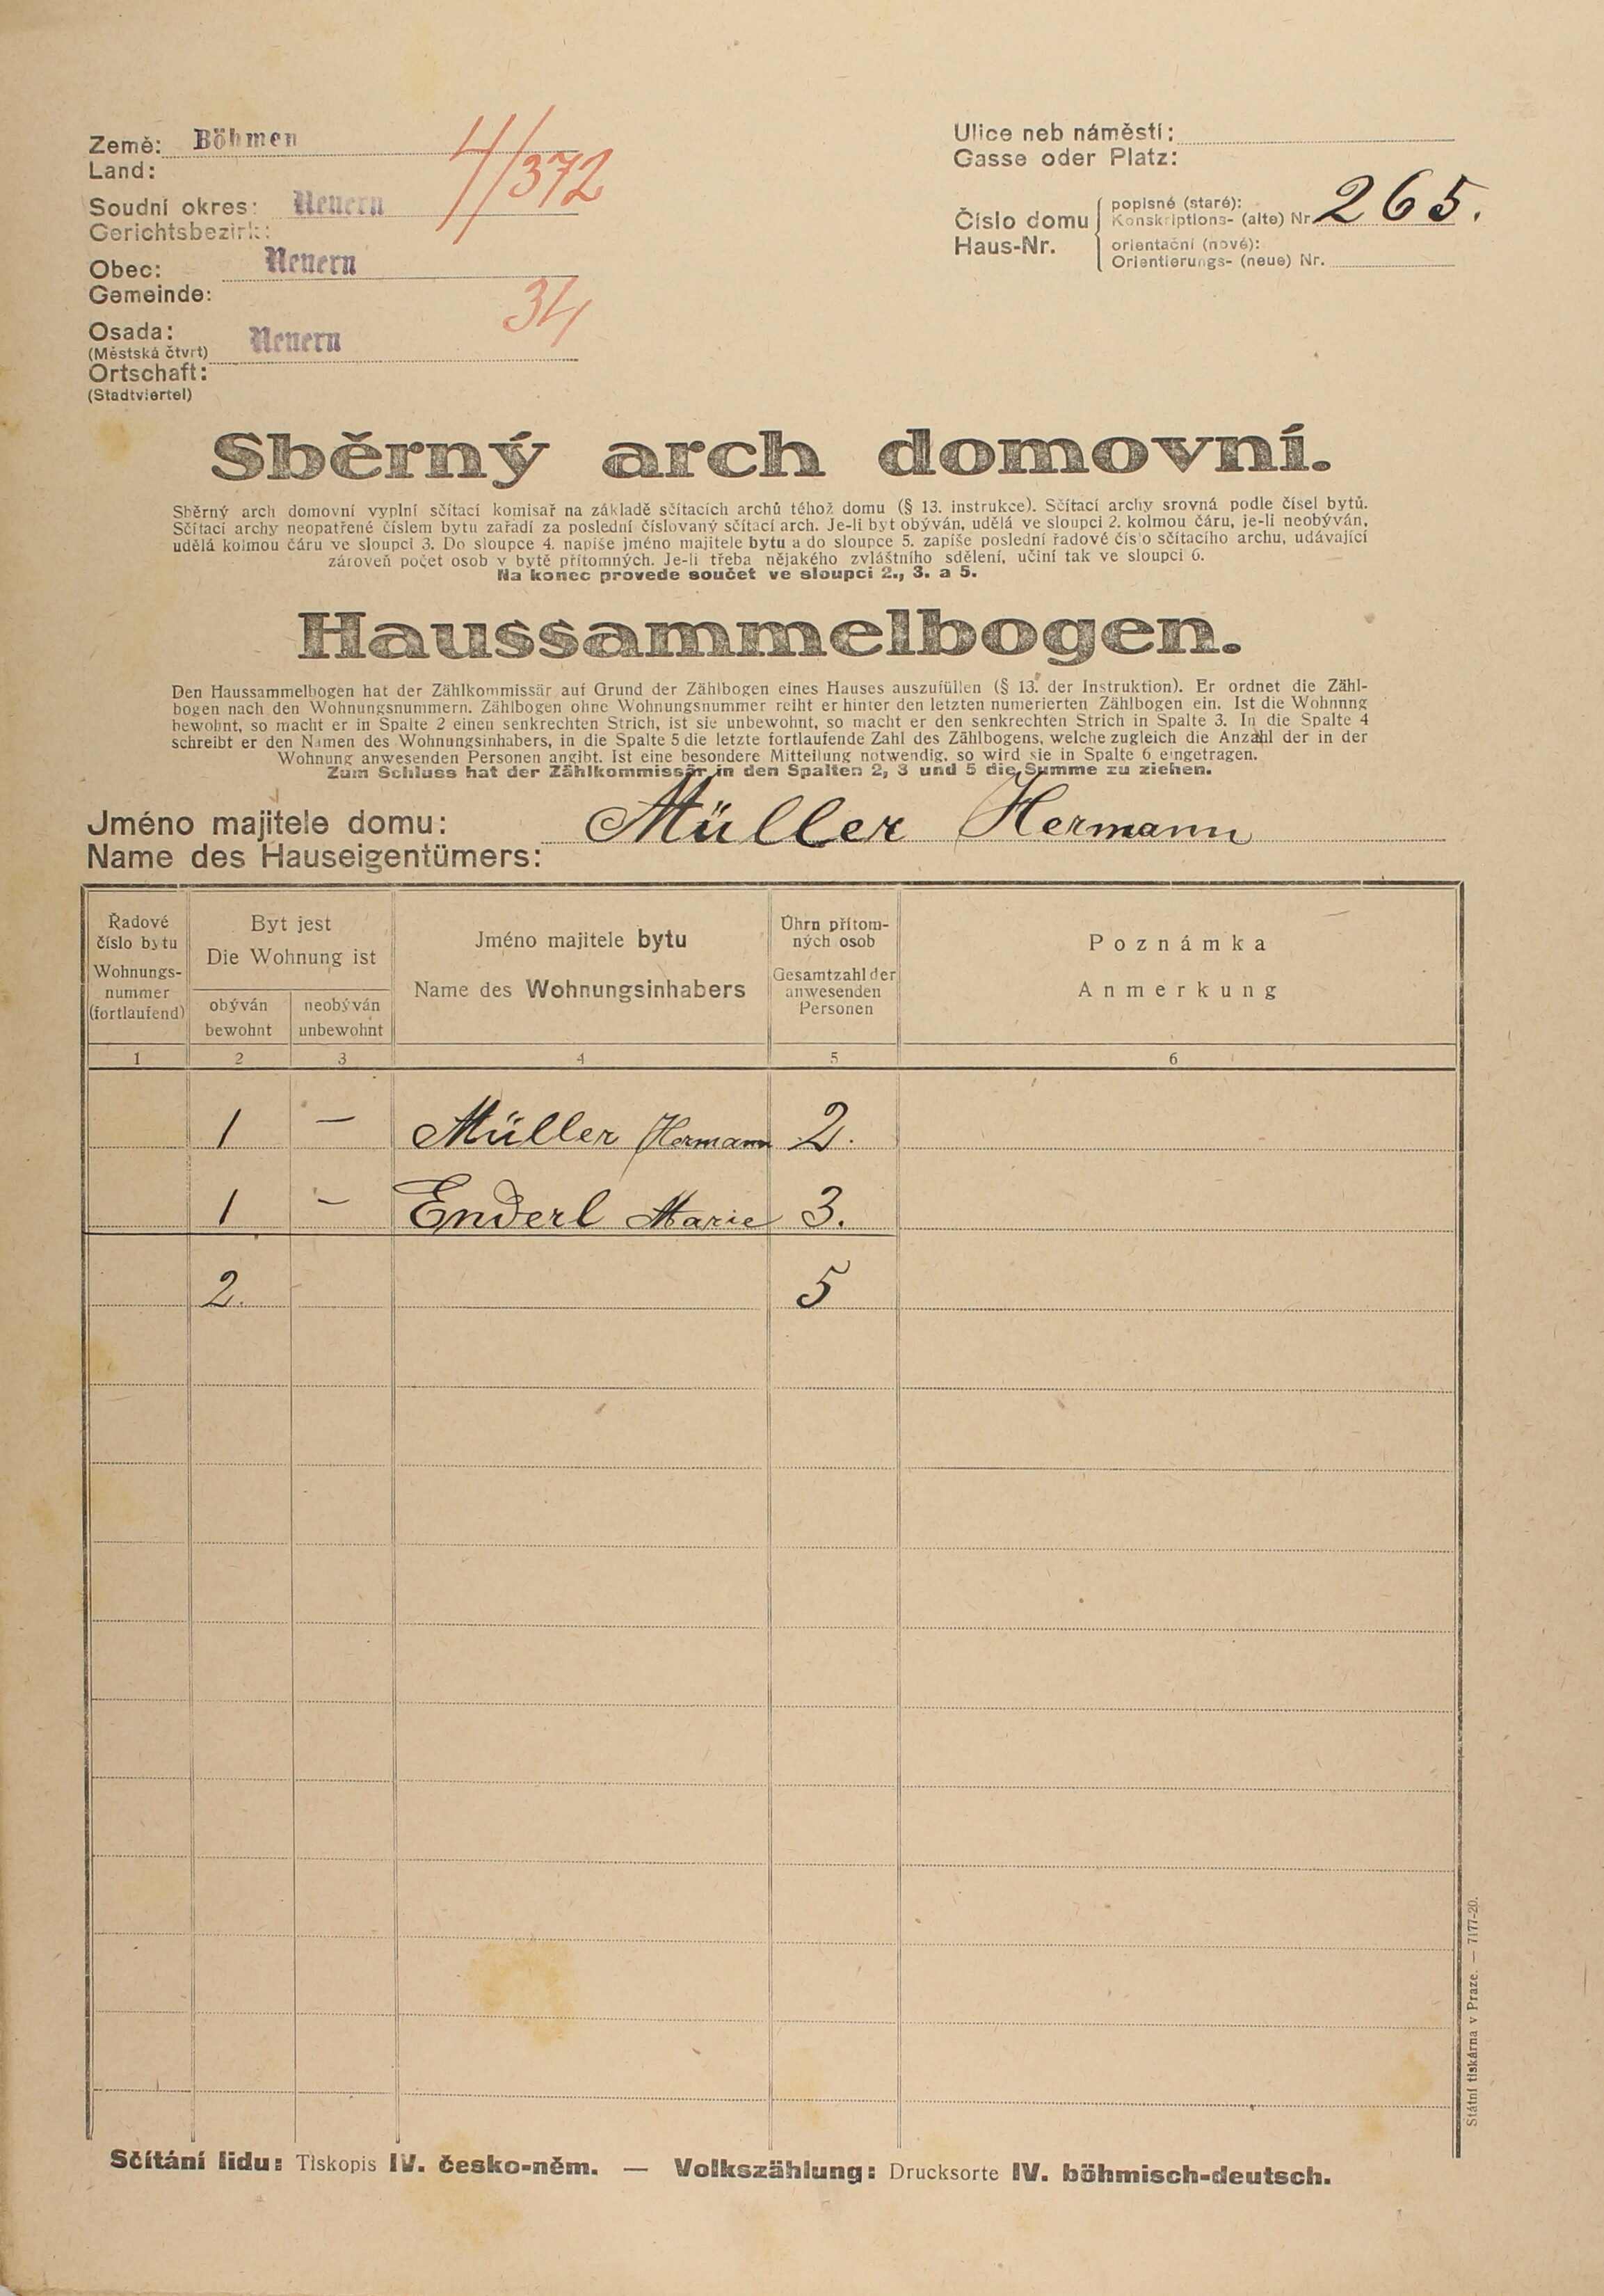 Země: Böhmen
Land:
4/372
Soudní okres: Neuern
Gerichtsbezirk:
Obec: Neuern
Gemeinde:
34
Osada: Neuern
(Městská čtvrt)
Ortschaft:
(Stadtviertel)
Ulice neb náměstí:
Gasse oder Platz:
Číslo domu
Haus-Nr.
popisné (staré):
Konskriptions- (alte) Nr. 265.
orientační (nové):
Orientierungs- (neue) Nr.
Sběrný arch domovní.
Sběrný arch domovní vyplní sčítací komisař na základě sčítacích archů téhož domu (§ 13. instrukce). Sčítací archy srovná podle čísel bytů.
Sčítací archy neopatřené číslem bytu zařadí za poslední číslovaný sčítací arch. Je-li byt obýván, udělá ve sloupci 2. kolmou čáru, je-li neobýván,
udělá kolmou čáru ve sloupci 3. Do sloupce 4. napíše jméno majitele bytu a do sloupce 5. zapíše poslední řadové číslo sčítacího archu, udávající
zároveň počet osob v bytě přítomných. Je-li třeba nějakého zvláštního sdělení, učiní tak ve sloupci 6.
Na konec provede součet ve sloupci 2., 3. a 5.
Haussammelbogen.
Den Haussammelbogen hat der Zählkommissär auf Grund der Zählbogen eines Hauses auszufüllen (§ 13. der Instruktion). Er ordnet die Zähl-
bogen nach den Wohnungsnummern. Zählbogen ohne Wohnungsnummer reiht er hinter den letzten numerierten Zählbogen ein. Ist die Wohnnng
bewohnt, so macht er in Spalte 2 einen senkrechten Strich, ist sie unbewohnt, so macht er den senkrechten Strich in Spalte 3. In die Spalte 4
schreibt er den Namen des Wohnungsinhabers, in die Spalte 5 die letzte fortlaufende Zahl des Zählbogens, welche zugleich die Anzahl der in der
Wohnung anwesenden Personen angibt. Ist eine besondere Mitteilung notwendig, so wird sie in Spalte 6 eingetragen.
Zum Schluss hat der Zählkommissär in den Spalten 2, 3 und 5 die Summe zu ziehen.
Jméno majitele domu: Müller Hermann
Name des Hauseigentümers:
Řadové
číslo bytu
Wohnungs-
nummer
(fortlaufend)
Byt jest
Die Wohnung ist
obýván
bewohnt
neobýván
unbewohnt
Jméno majitele bytu
Name des Wohnungsinhabers
Úhrn přítom-
ných osob
Gesamtzahl der
anwesenden
Personen
Poznámka
Anmerkung
1 2 3 4 5 6
1 — Müller Hermann 2.
1 — Enderl Marie 3.
2. 5
Státní tiskárna v Praze. — 7177-20.
Sčítání lidu: Tiskopis IV. česko-něm. — Volkszählung: Drucksorte IV. böhmisch-deutsch.